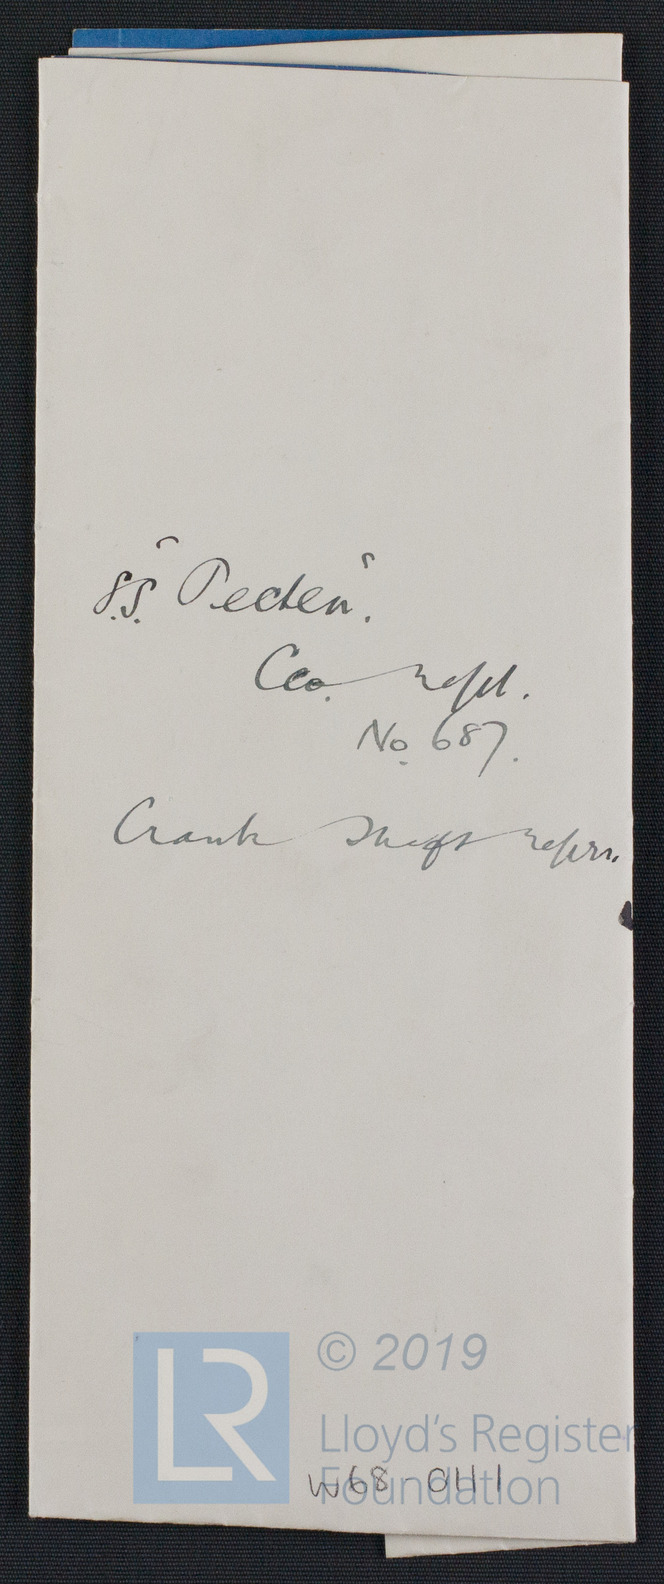 S.S. "Pecten".
Cco. Rept.
No. 687.
Crank Shaft
© 2019
LR
Lloyd's Register
Foundation
W68-0411